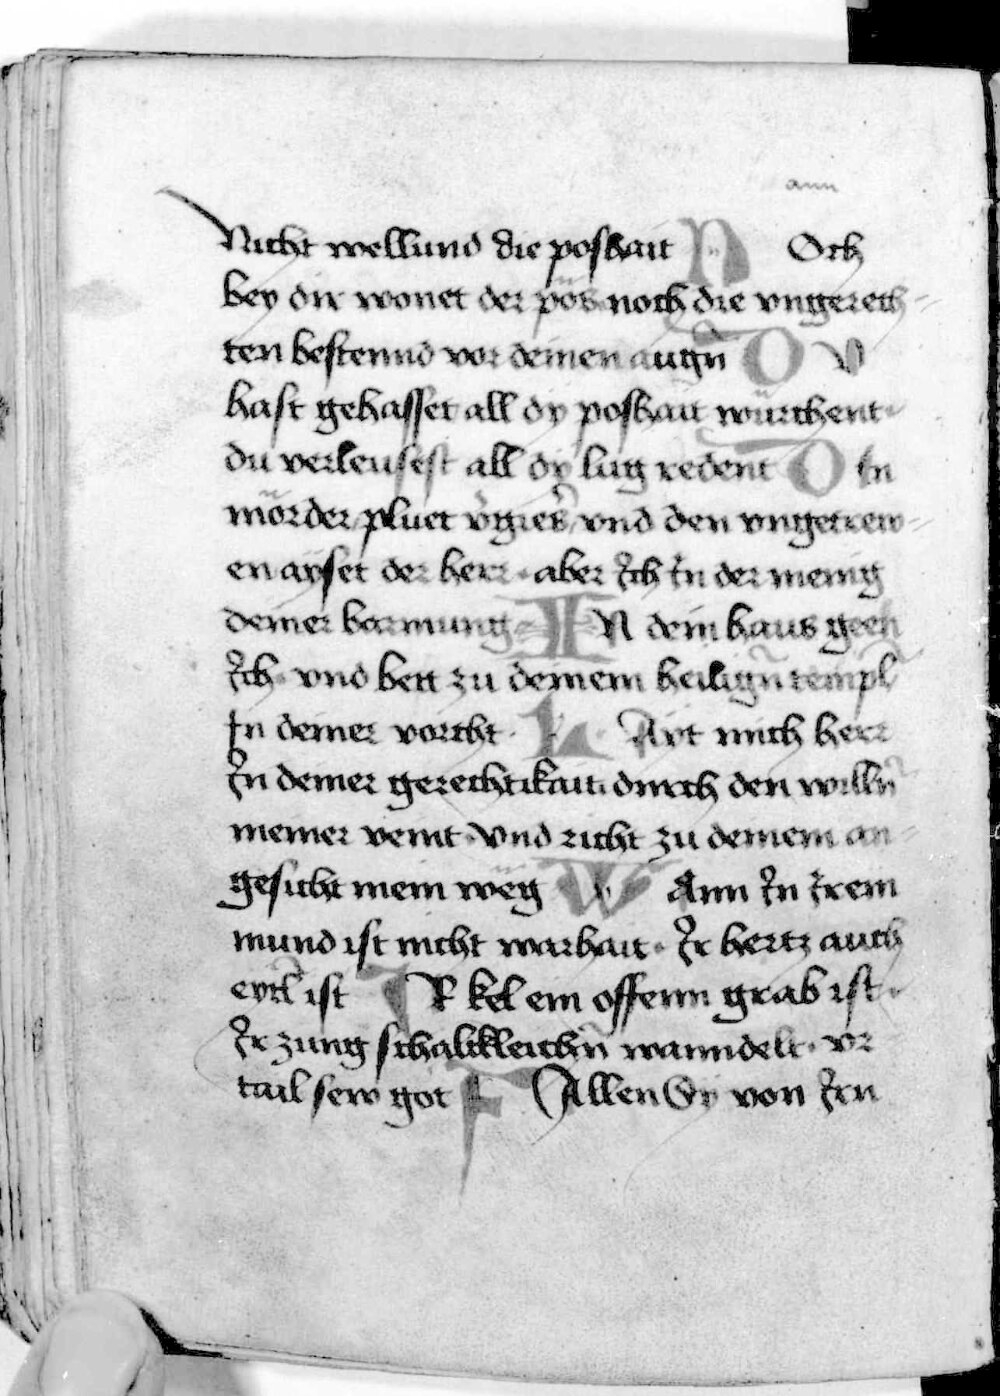 ann
Nicht wellund die poshait N Och
bey dir wonet der pös noch die vngerech-
ten bestennd vor deinen augn̄ D V
hast gehasset all dy poshait würchent·
du verleusest all dÿ lug redent D En
mörder pluet vgies vnd den vngetrew-
en aÿset der herr · aber Ich In der menig
deiner barmung · I N dein haus geeh
Ich · vnd bett zu deinem heilign̄ templ
In deiner vorcht · L Ayt mich herr
In deiner gerechtikait durch den willn̄
meiner veint · vnd richt zu deinem an-
gesicht mein wëg W Ann In Irem
mund ist nicht warhait · Ir hertz auch
eytl ist I R kel ein offenn grab ist ·
Ir zung schalckleichn̄ wanndelt · vr
tail sew got F Allen Sy von Irn